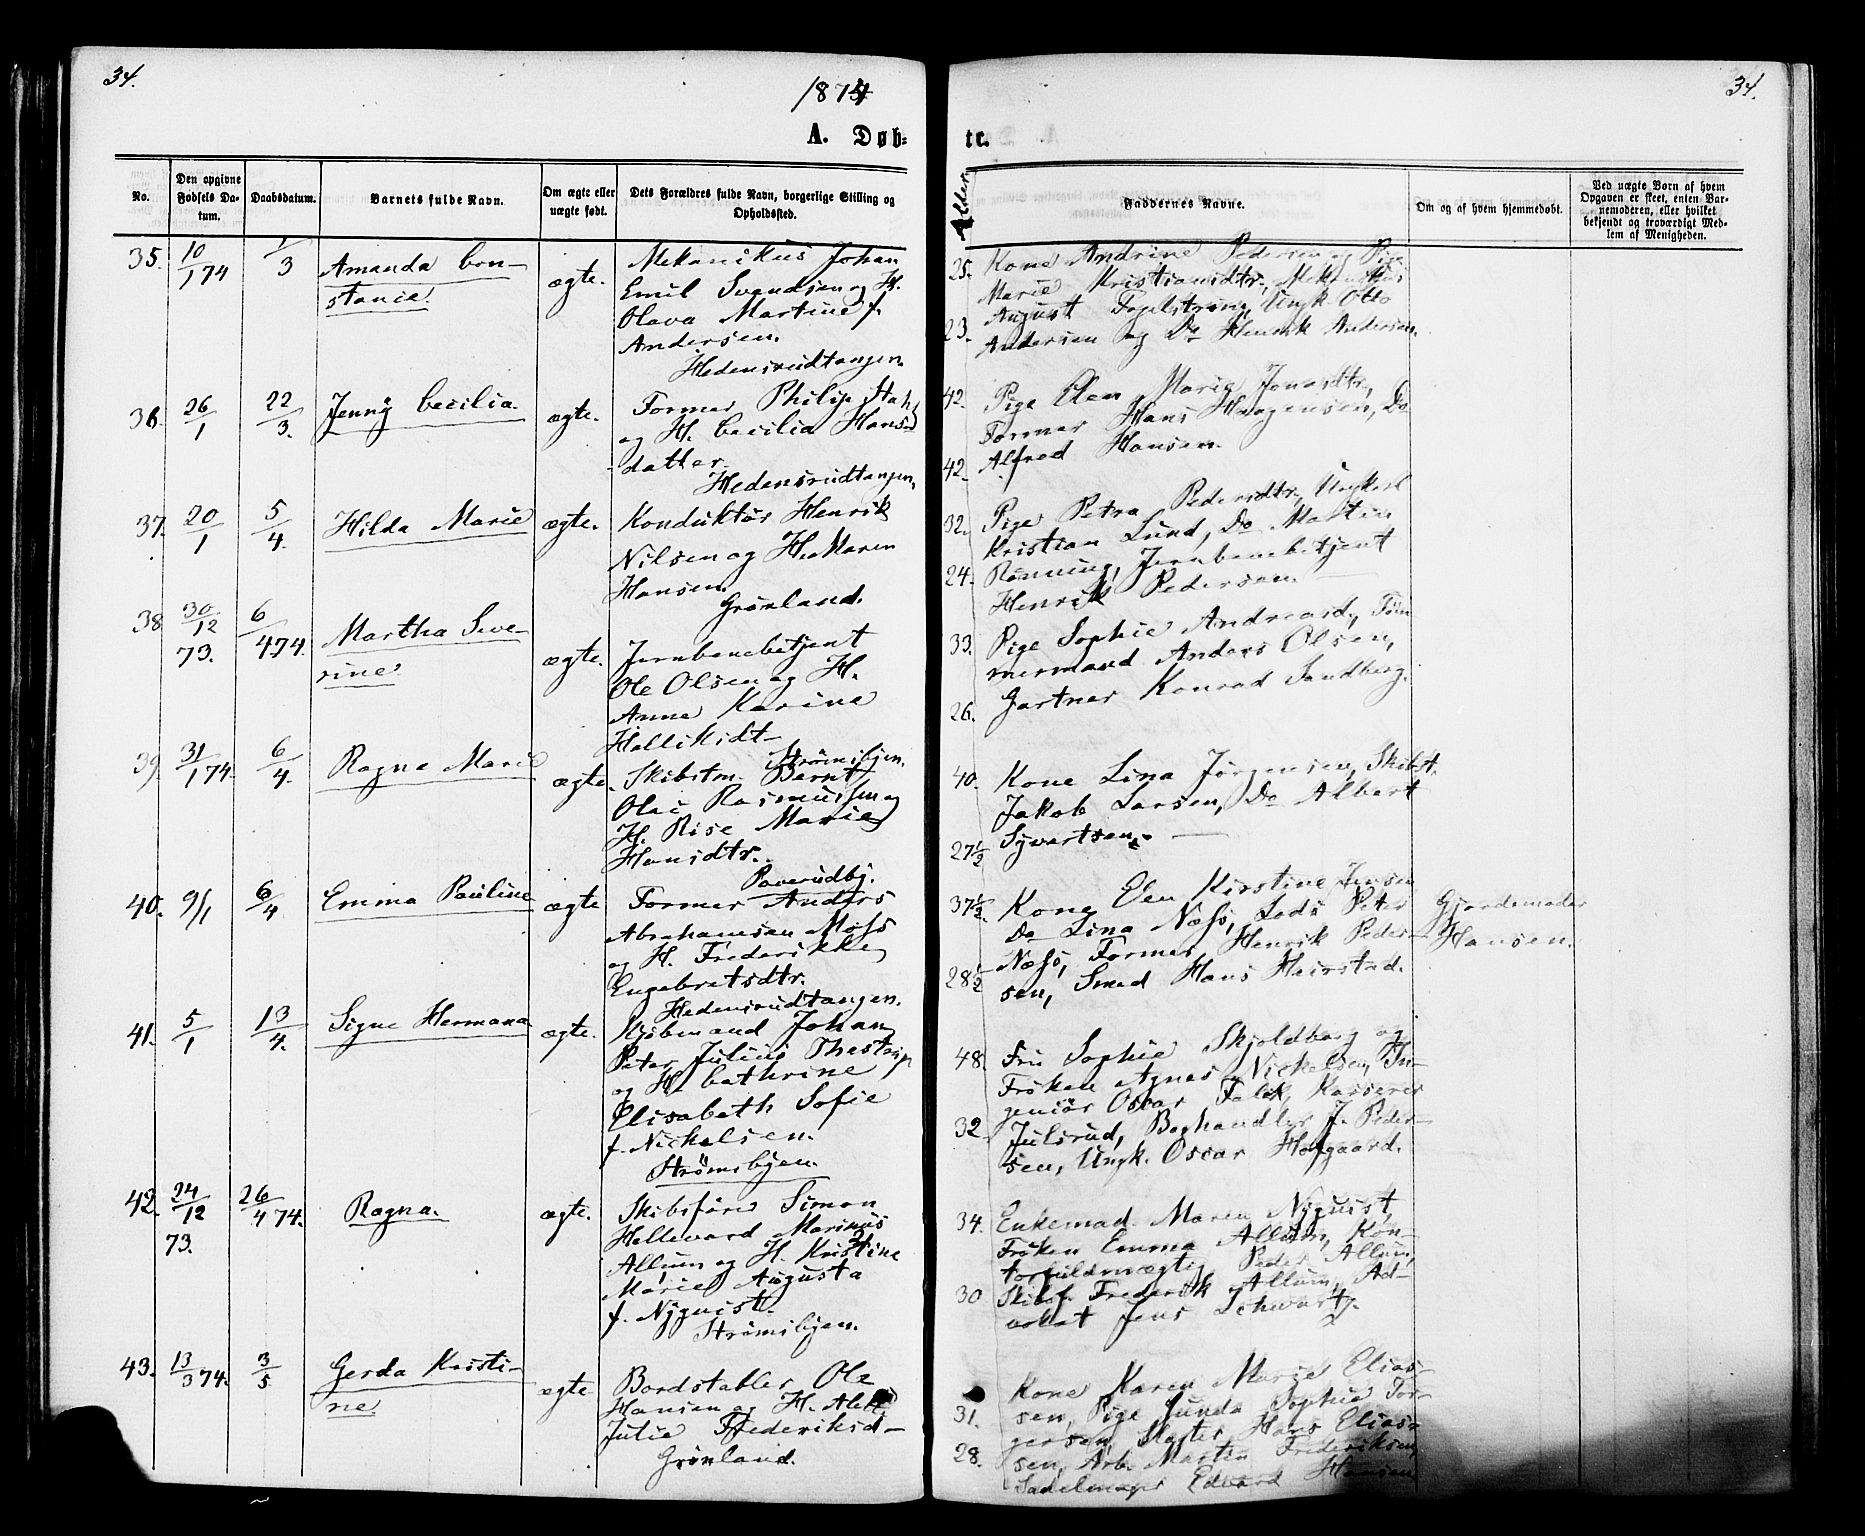 34.
34.
1874
A. Døb=
te.
No.
Den opgivne Fødsels Da-tum.
Daabsdatum.
Barnets fulde Navn.
Om ægte eller uægte født.
Dets Forældres fulde Navn, borgerlige Stilling og Opholdssted.
Alder
Faddernes Navne.
Om og af hvem hjemmedøbt.
Ved uægte Børn af hvem Opgaven er skeet, enten Bar-nemoderen, eller hvilket bekjendt og troværdigt Med-lem af Menigheden.
35. 10/1 74 1/3 Amanda Con-
stance. ægte.
Mekanikus Johan
Emil Svendsen og H.
Olava Martine f.
Andersen.
Hedensrudtangen.
25. Kone Andrine Pedersen og Pige
Marie Kristiansdtr., Mekanikus
August Fagelstrøm, Ungk Otto
23. Andersen og Do Henrik Andersen.
36. 26/1 22/3. Jenny Cecilia. ægte.
Former Philip
og H. Cecilia Hans-
datter.
Hedensrudtangen.
42. Pige Elen Marie Jonasdtr,
Former Hans Haagensen, Do
42. Alfred Hansen.
37. 20/1 5/4. Hilda Marie ægte.
Konduktør Henrik
Nilsen og H. Maren
Hansen.
Grønland.
32. Pige Petra Pedersdtr., Ungkarl
Kristian Lund, Do Martin
24. Rønning, Jernbanebetjent
Henrik Pedersen.
38 30/12 73. 6/4 74. Martha Seve-
rine ægte.
Jernbanebetjent
Ole Olsen og H.
Anne Karine
Strømsbyen.
33. Pige Sophie Andreasd., Tøm
mermand Anders Olsen,
26. Gartner Konrad Sandberg.
39. 31/1 74. 6/4. Ragna Marie ægte.
Skibstm. Bernt
Olai Rasmussen og
H. Rise Marie
Hansdtr.
40. Kone Lina Jørgensen, Skibst.
Jakob Larsen, Do Albert
27 1/2 Syvertsen.
40. 9/1 6/4. Emma Pauline ægte
Former Anders
Abrahamsen Moss
og H. Frederikke
Engebretsdtr.
Hedensrudtangen.
37 1/2. Kone Elen Kirstine Jensen
Do Lina Næss, Lods Peter
Næss, Former Henrik Peder-
28 1/2 sen, Smed Hans Heirstad.
Gjordemoder
Hansen.
41. 5/1 13/4. Signe Hermana ægte.
Kjøbmand Johan
Peter Julius Thestrup
og H. Cathrine
Elisabeth Sofie
f. Nickelsen.
Strømsbyen.
48. Fru Sophie Skjoldborg og
Frøken Agnes Nickelsen, In-
geniør Oscar Falck, Kasserer
32. Julsrud, Boghandler J. Peder-
sen, Ungk. Oscar Hofgaard.
42. 24/12 73. 26/4 74. Ragna. ægte.
Skibsfører Simon
Hellevard Marinus
Allum og H. Kristine
Marie Augusta
f. Nyquist.
Strømsbyen.
34. Enkemad. Maren Nyquist,
Frøken Emma Allum, Kon-
torfuldmægtig Peder Allum,
30 Skibsf. Frederik Allum, Ad-
vokat Jens Schwartz.
43. 13/3 74. 3/5 Gerda Kristi-
ne ægte
Bordstabler Ole
Hansen og H.
Julie Frederiksd-
Grønland.
Kone Karen Marie Elias-
31. sen, Pige Gunda Sophie Tor-
gersen, Hans Elias-
28. sen, Arb. Martin Frederiksen,
Sadelmager Edvard Hansen